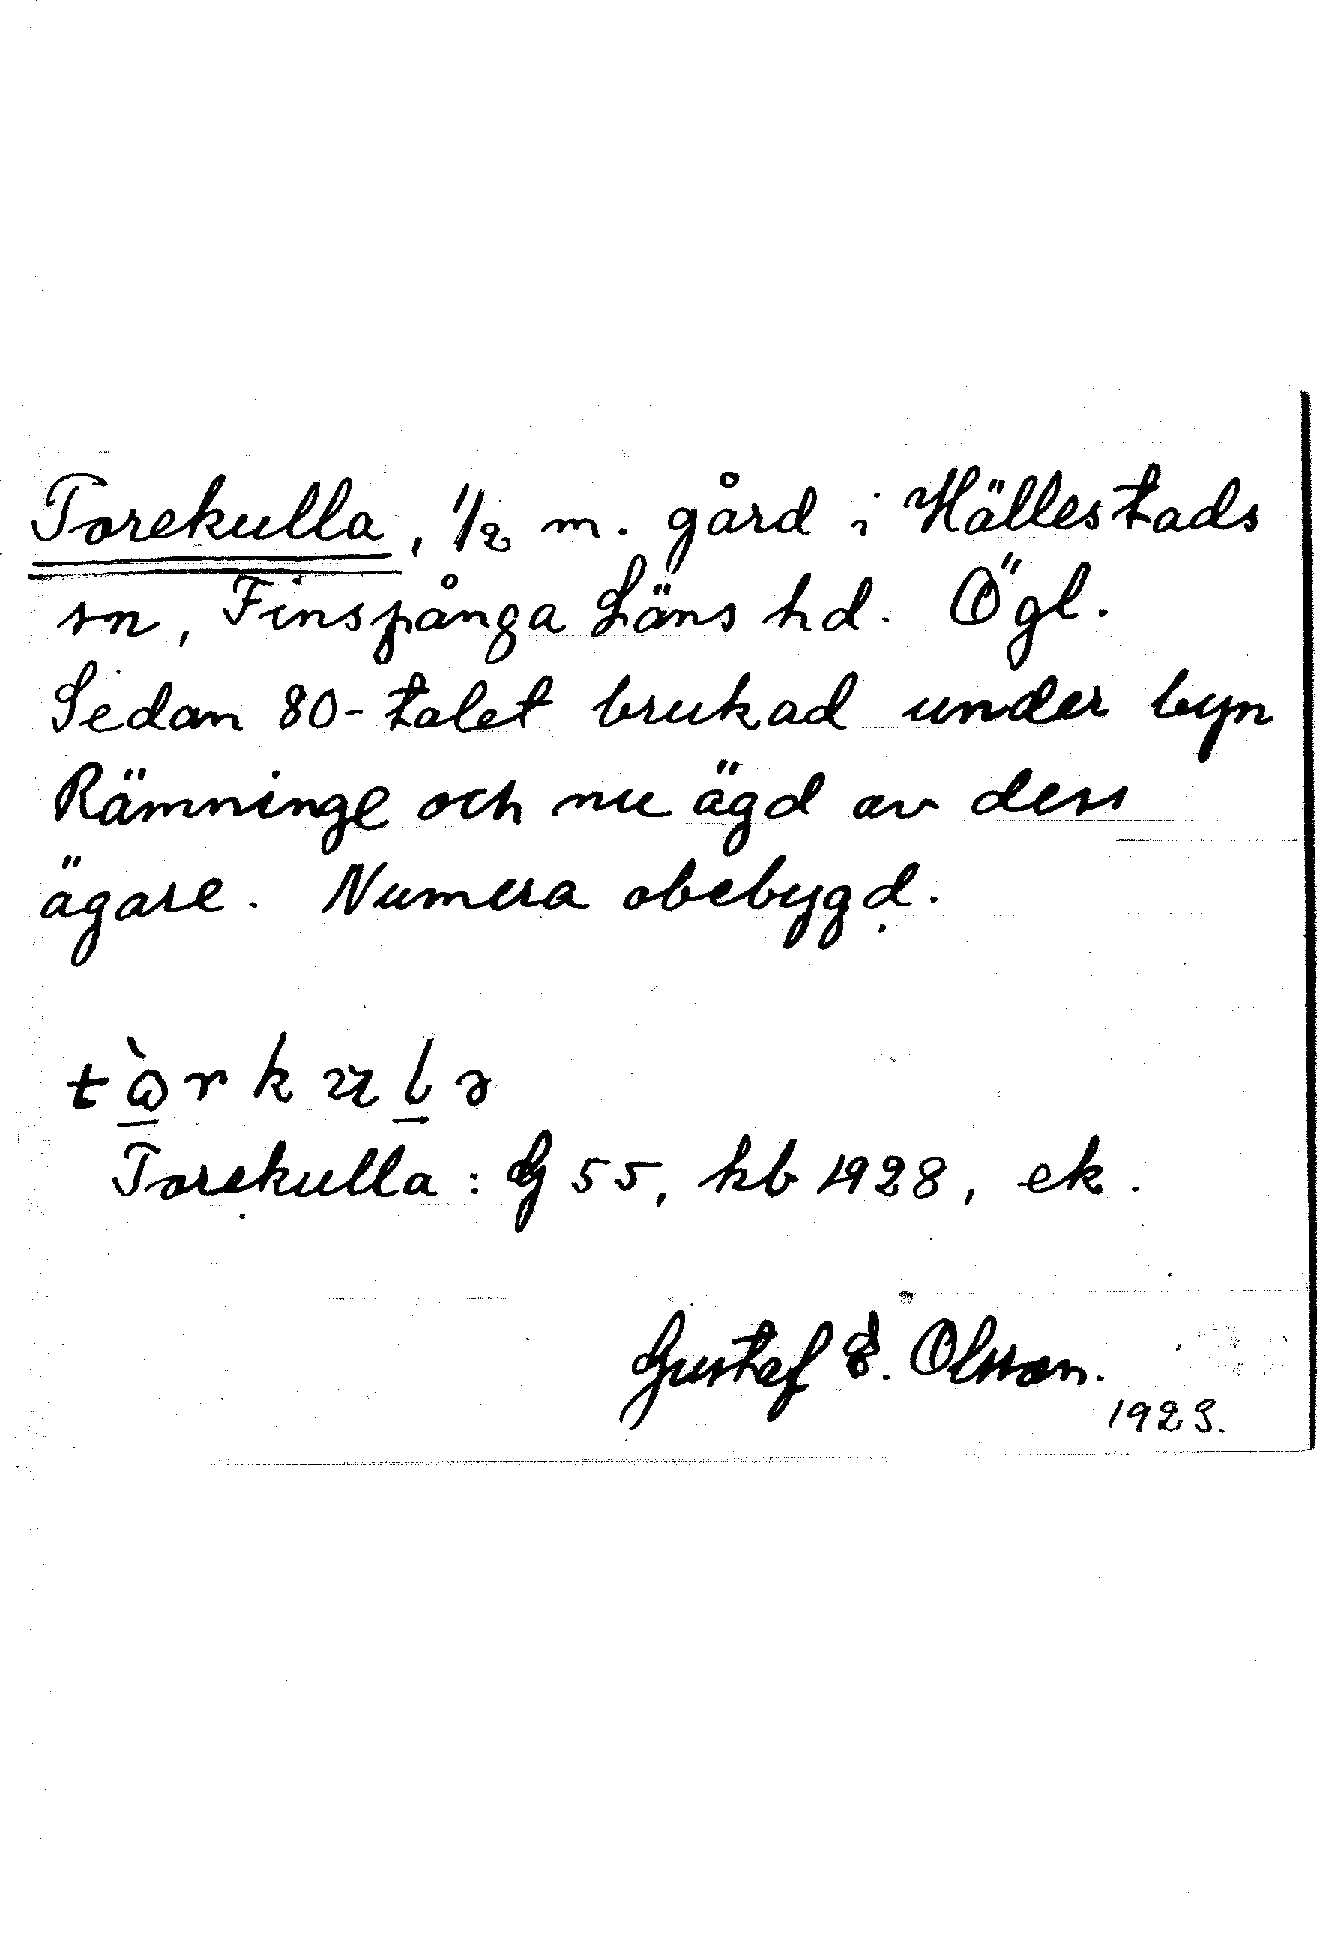 Torekulla, 1/2 m. gård i Hällestads
sn, Finspånga Läns hd. Ögl.
Sedan 80-talet brukad under byn
Rämninge och nu ägd av dess
ägare. Numera obebygd.
Torekulla: G 55, hb 1928, ek.
Gustaf E. Olsson.
1923.